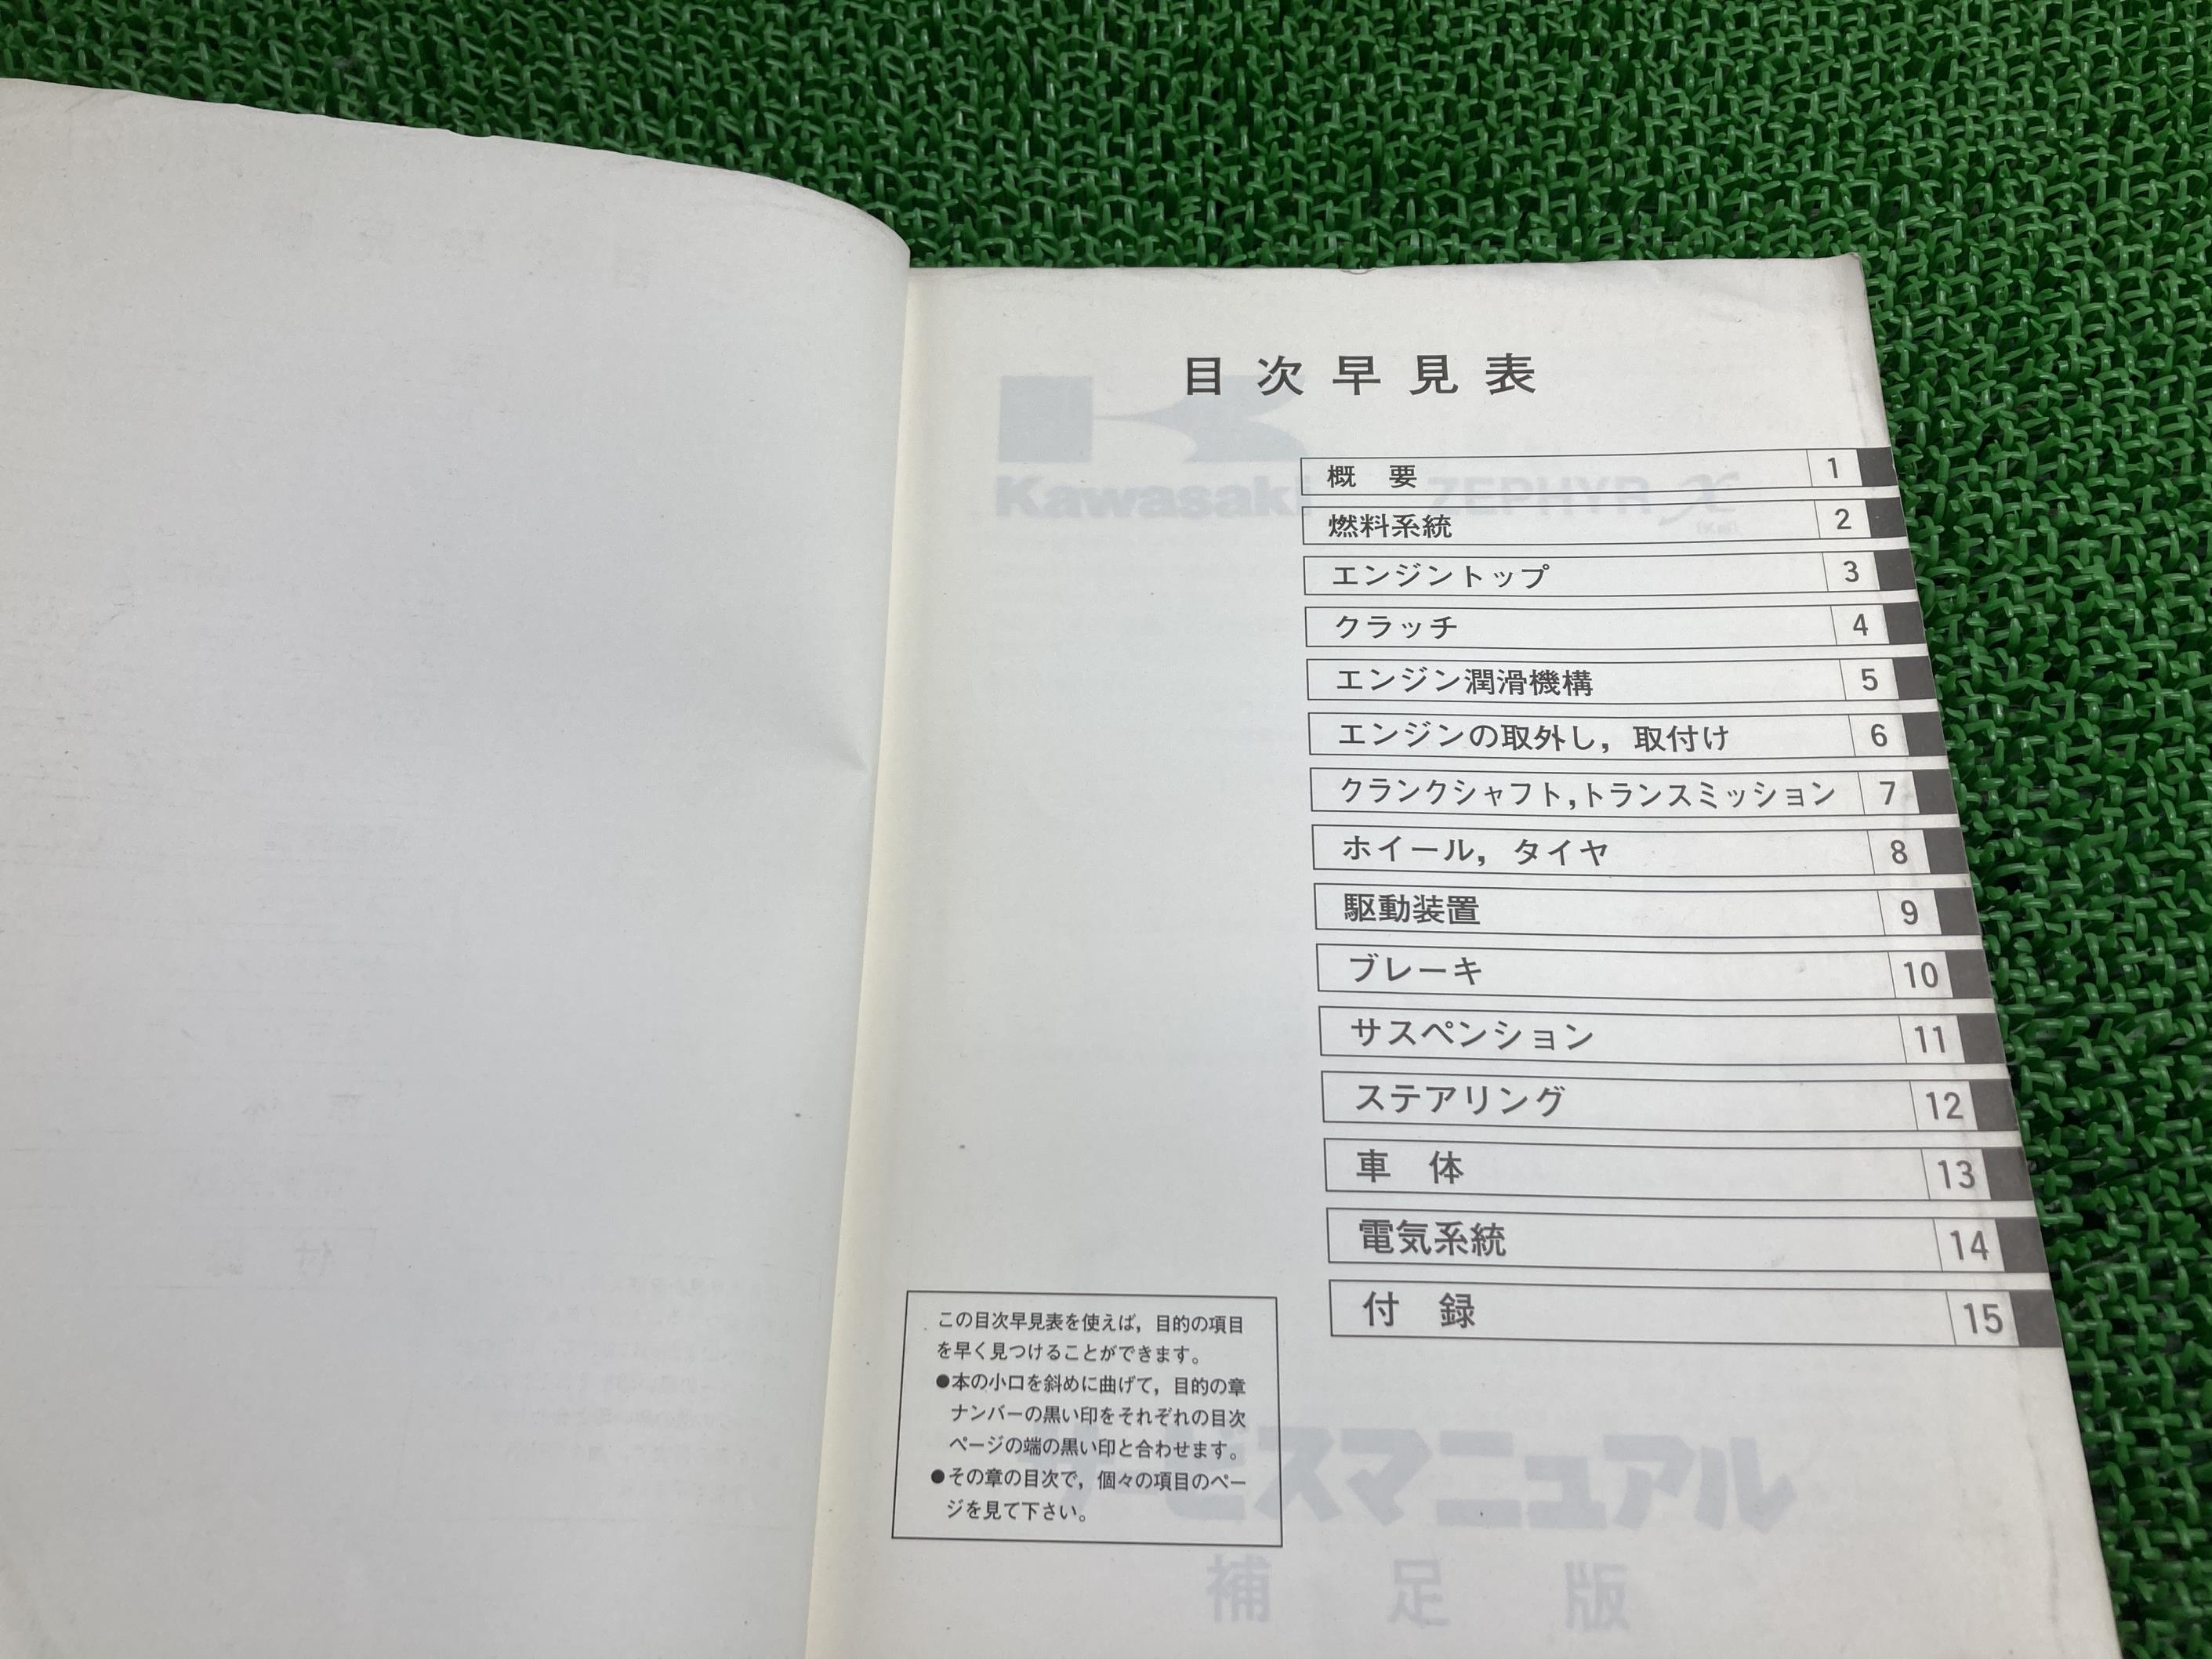 目次早見表
概 要 1
Kawasaki ZEPHYR χ
燃料系統 2
エンジントップ 3
クラッチ 4
エンジン潤滑機構 5
エンジンの取外し，取付け 6
クランクシャフト,トランスミッション 7
ホイール，タイヤ 8
駆動装置 9
ブレーキ 10
サスペンション 11
ステアリング 12
車 体 13
電気系統 14
付 録 15
この目次早見表を使えば，目的の項目
を早く見つけることができます。
●本の小口を斜めに曲げて，目的の章
ナンバーの黒い印をそれぞれの目次
ページの端の黒い印と合わせます。
●その章の目次で，個々の項目のペー
ジを見て下さい。
サービスマニュアル
補 足 版